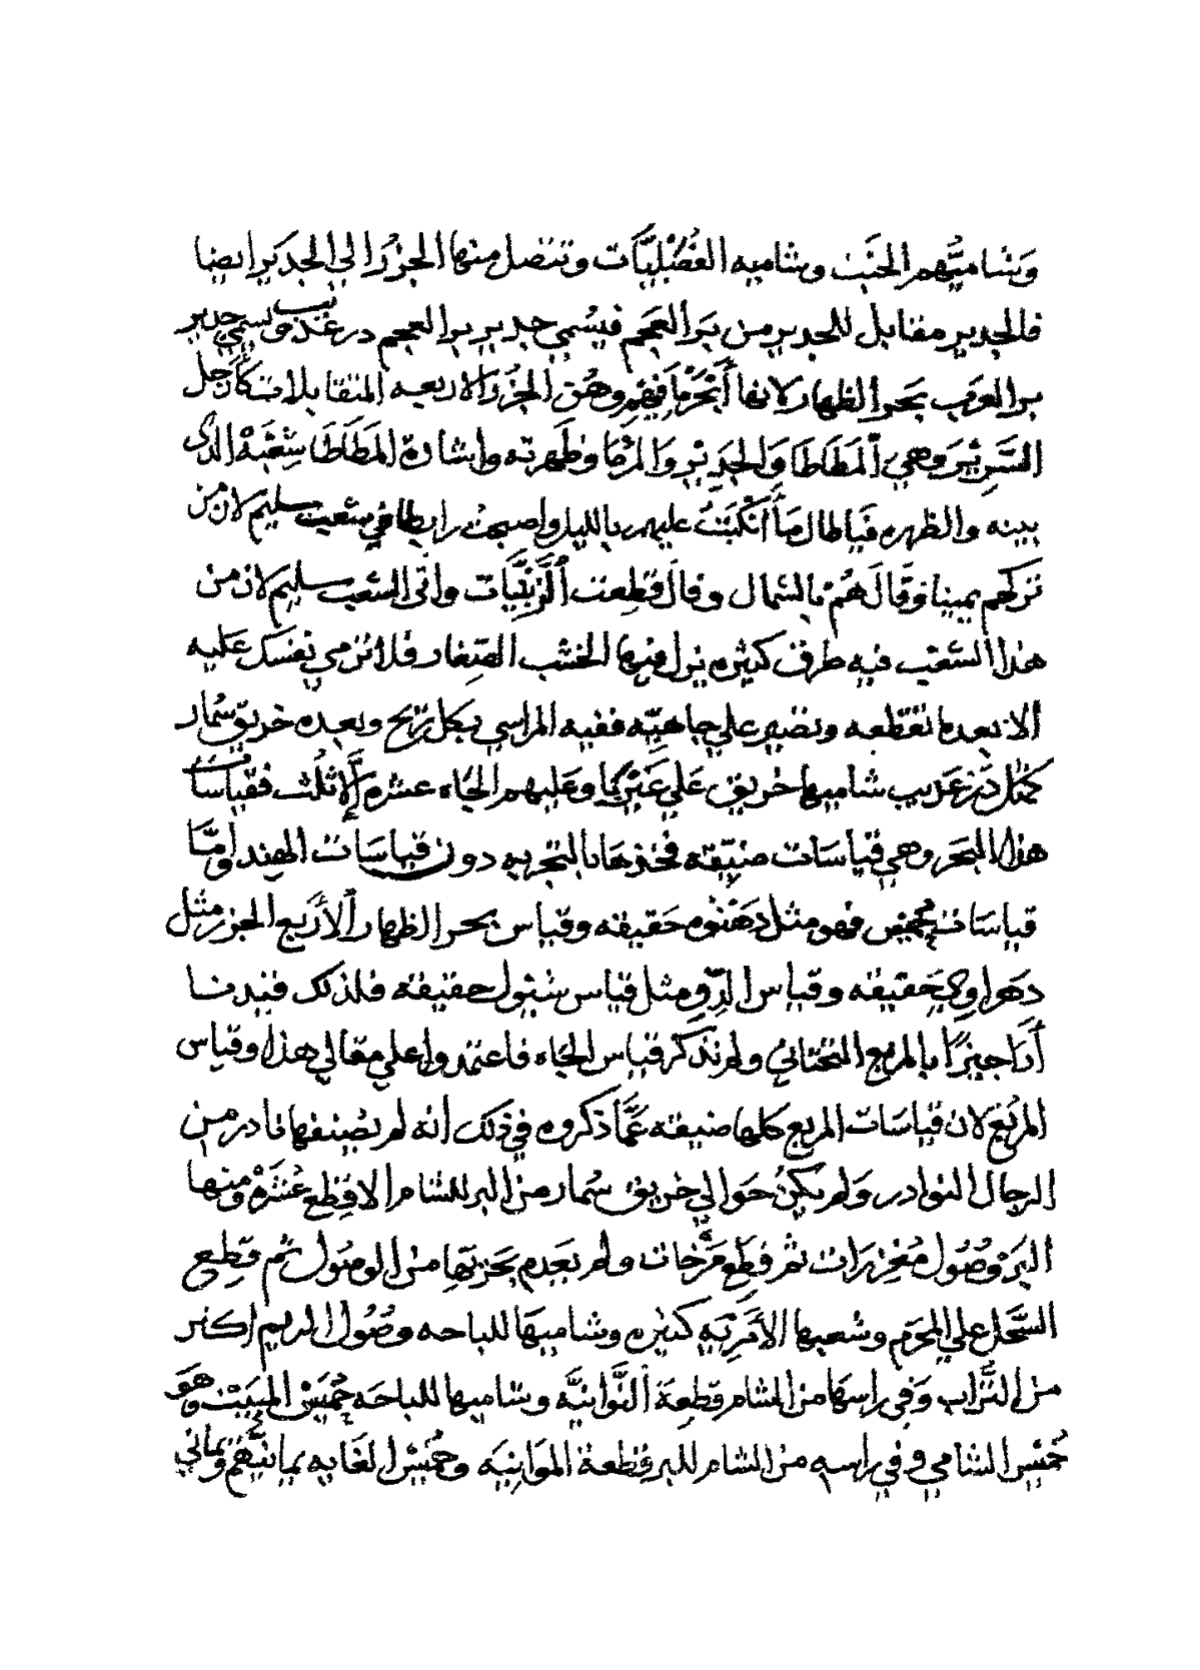 وشاميهم الجنب وشاميه الغضليات وتتصل منها الجزر الي الجدير ايضا
فالجدير مقابل للجدير من بر العجم فيسمي جدير بر العجم درعندوب ويسمي جدير
بر العرب بحر الظهار لانها أبحر ما فيهم وهن الجزر الاربعه المتقابلات كأرجل
السرير وهي المطاطا والجدير والمرما وظهرته واشارة المطاطا شعبة الذي
بينه والظهره فيا طال ما أنكبت عليهم بالليل واصبحت رابطا في شعب سليم لان من
تركهم يمينا وقال هم بالشمال وقال قطعت الزبيات واتي الشعب سليم لان من
هذا الشعب فيه طرف كثيره ينزل منها الخشب الصغار فلا ترمي نفسك عليه
الا بعد ما تقطعه وتصير علي جاهيه ففيه المراسي بكل ريح وبعده خريق سمار
كمثل درعرب شاميها خريق علي عيركا وعليهم الجاه عشره إلا ثلث فقياسات
هذا البحر وهي قياسات ضيقه فخذها بالتجربه دون قياسات الهند واما
قياسات فهو مثل دهنوه حقيقه وقياس بحر الظهار الأربع الجزر مثل
دهراوي حقيقه وقياس الدو مثل قياس شيول حقيقه فلذلك قيدنا
أراجيزا بالمربع التحتاني ولم نذكر قياس الجاه فاعتمدوا علي مقالي هذا وقياس
المربع لان قياسات المربع كلها ضيقه عما ذكروه في ذلك انه لم يصنفها نادر من
الرجال النوادر ولم يكن حوالي خريق سمار من البر للشام الا قطع عشره ومنها
البر وصول مغزرات ثم قطع مرخات ولم بعدم بحزتها من الوصول ثم قطع
السحل علي المحرم وشعبها الأمريه كثيره وشاميها للباحه وصول الديم اكثر
من التراب وفي راسها من الشام قطعة النوابيه وشاميها للباحه حميس المبيت وهو
حميس الشامي وفي راسه من الشام للبر قطعة الموابيه وحميس الغابه يمانيهم ويماني